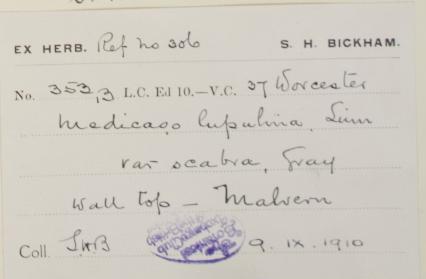 EX HERB. Ref no 306 S. H. BICKHAM.
No. 353,3 L.C. Ed 10.—V.C. 37 Worcester
Medicago lupulina, Linn
var scabra, Gray
wall top — Malvern
Coll. SHB 9. IX. 1910